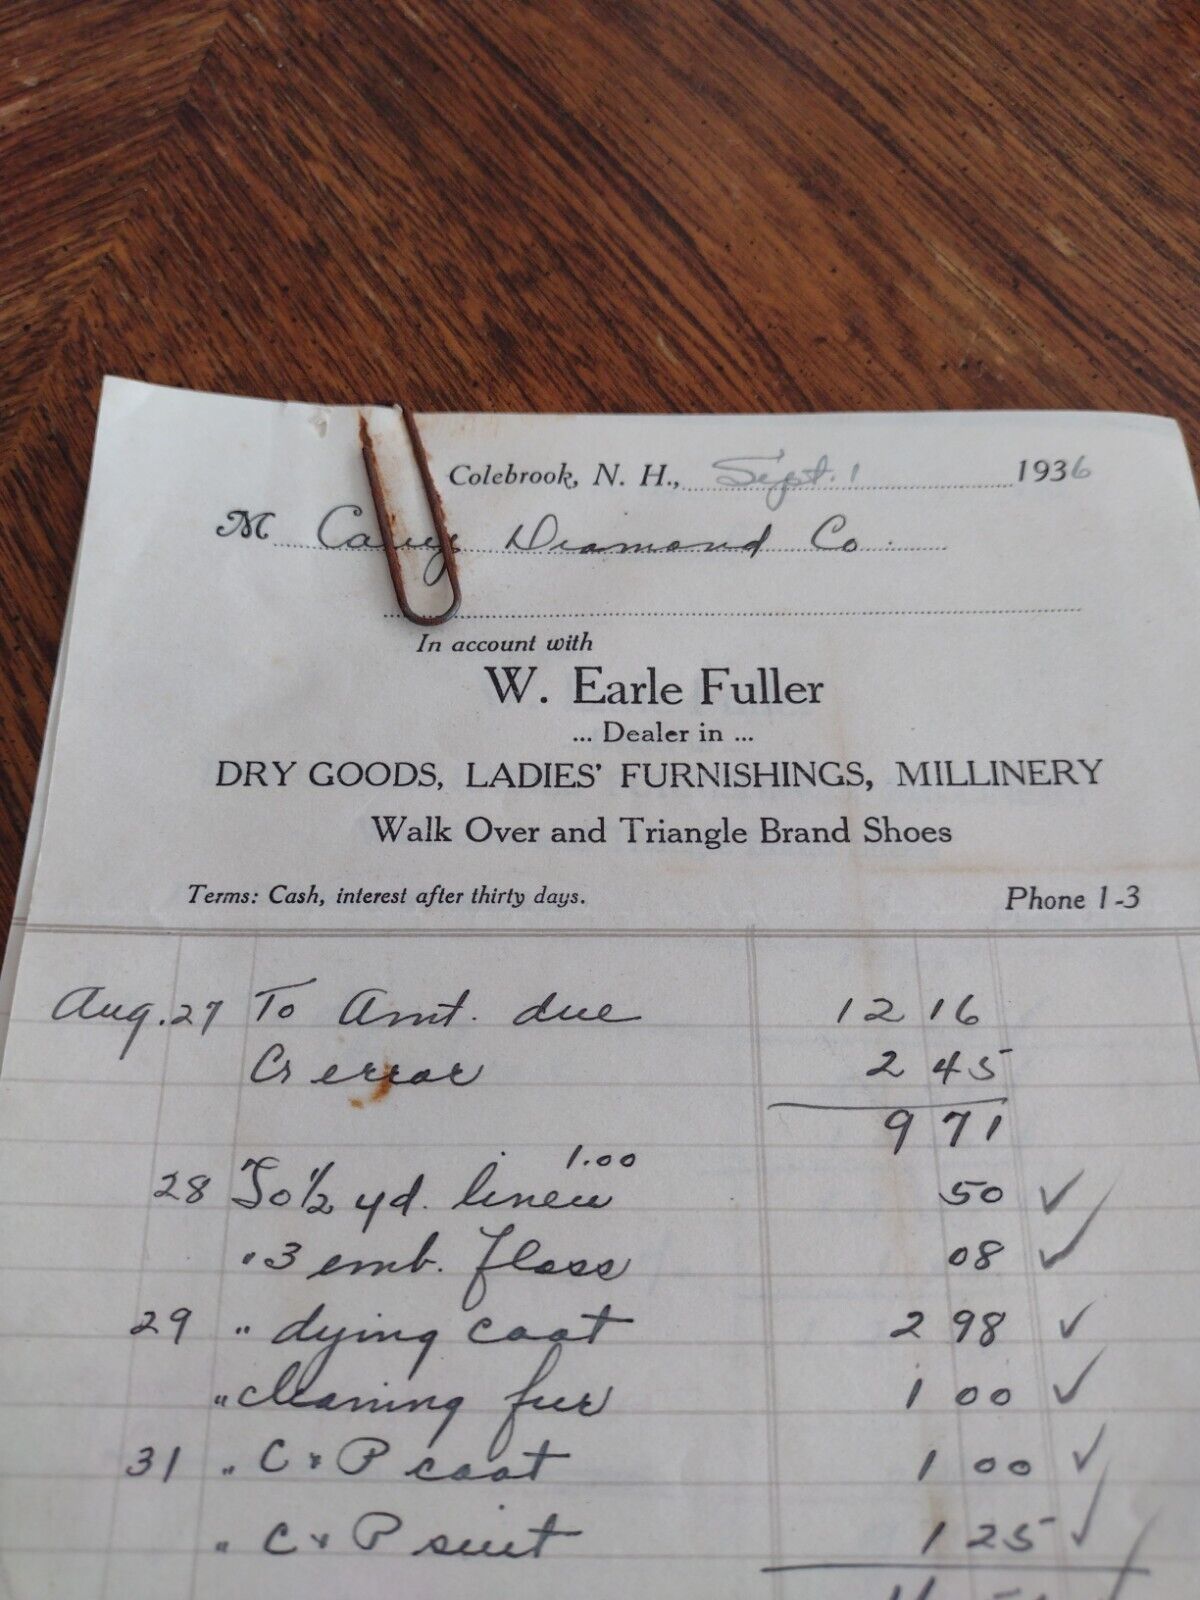 Colebrook, N. H., Sept. 1 1936
M Diamond Co.
In account with
W. Earle Fuller
... Dealer in ...
DRY GOODS, LADIES' FURNISHINGS, MILLINERY
Walk Over and Triangle Brand Shoes
Terms: Cash, interest after thirty days. Phone 1-3
Aug. 27 To Amt. due 12 16
Cr error 2 45
9 71
28 To 1/2 yd. linen 1.00 50 ✓
" 3 emb. floss 08 ✓
29 " dying coat 2 98 ✓
" cleaning fur 1 00 ✓
31 " C & P coat 1 00 ✓
" C & P suit 1 25 ✓